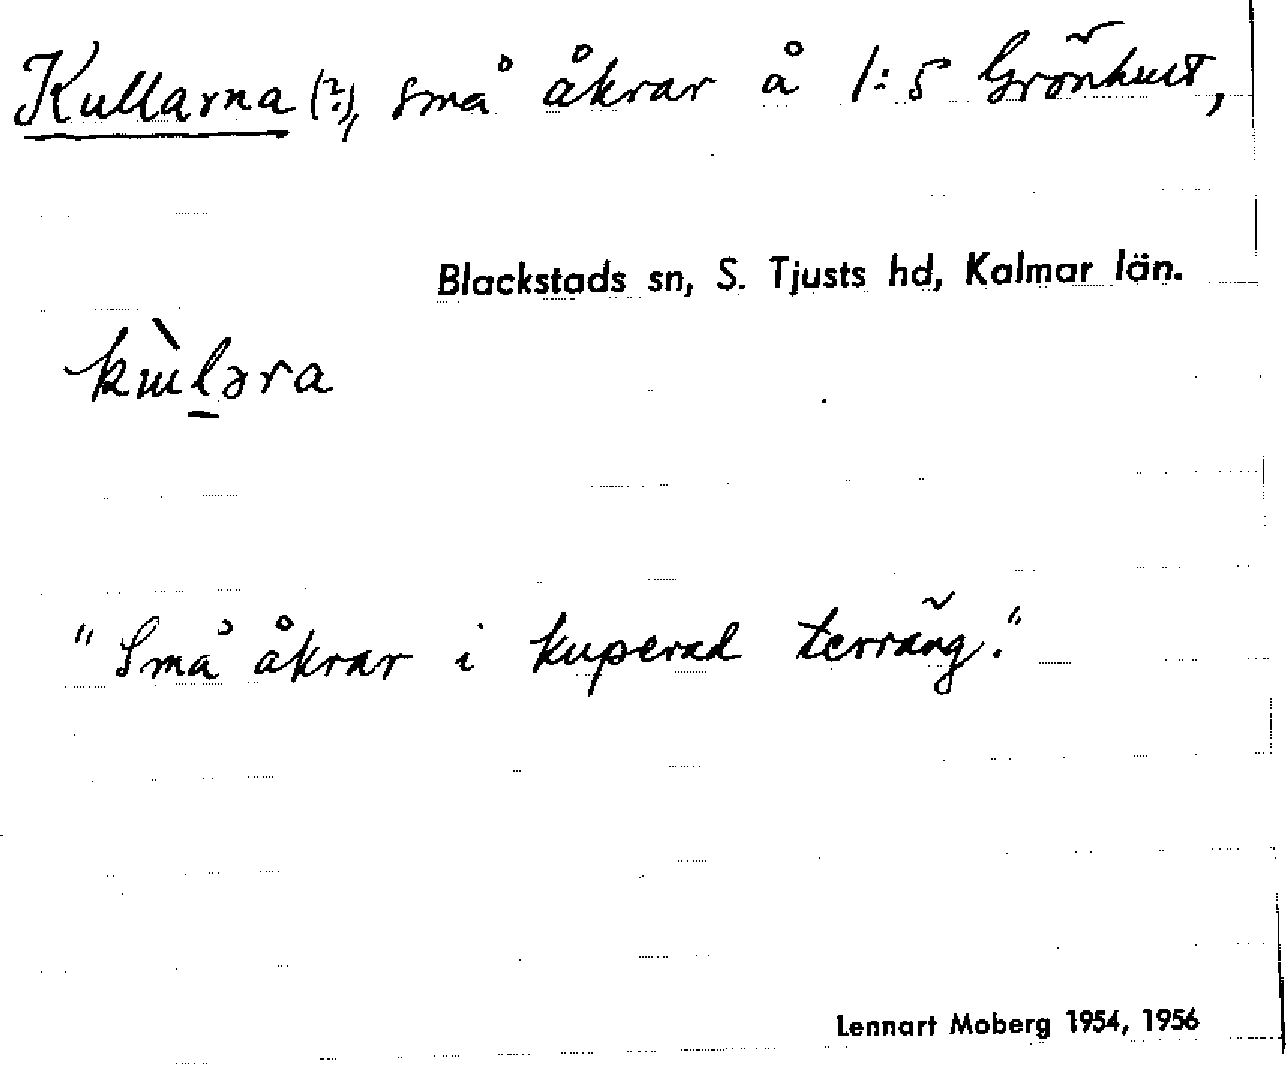 Kullarna (?), små åkrar å 1:5 Grönhult,
Blackstads sn, S. Tjusts hd, Kalmar län.
kɯ̀lɘra
"Små åkrar i kuperad terräng."
Lennart Moberg 1954, 1956